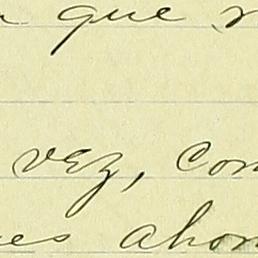 que
vez, com
ahor